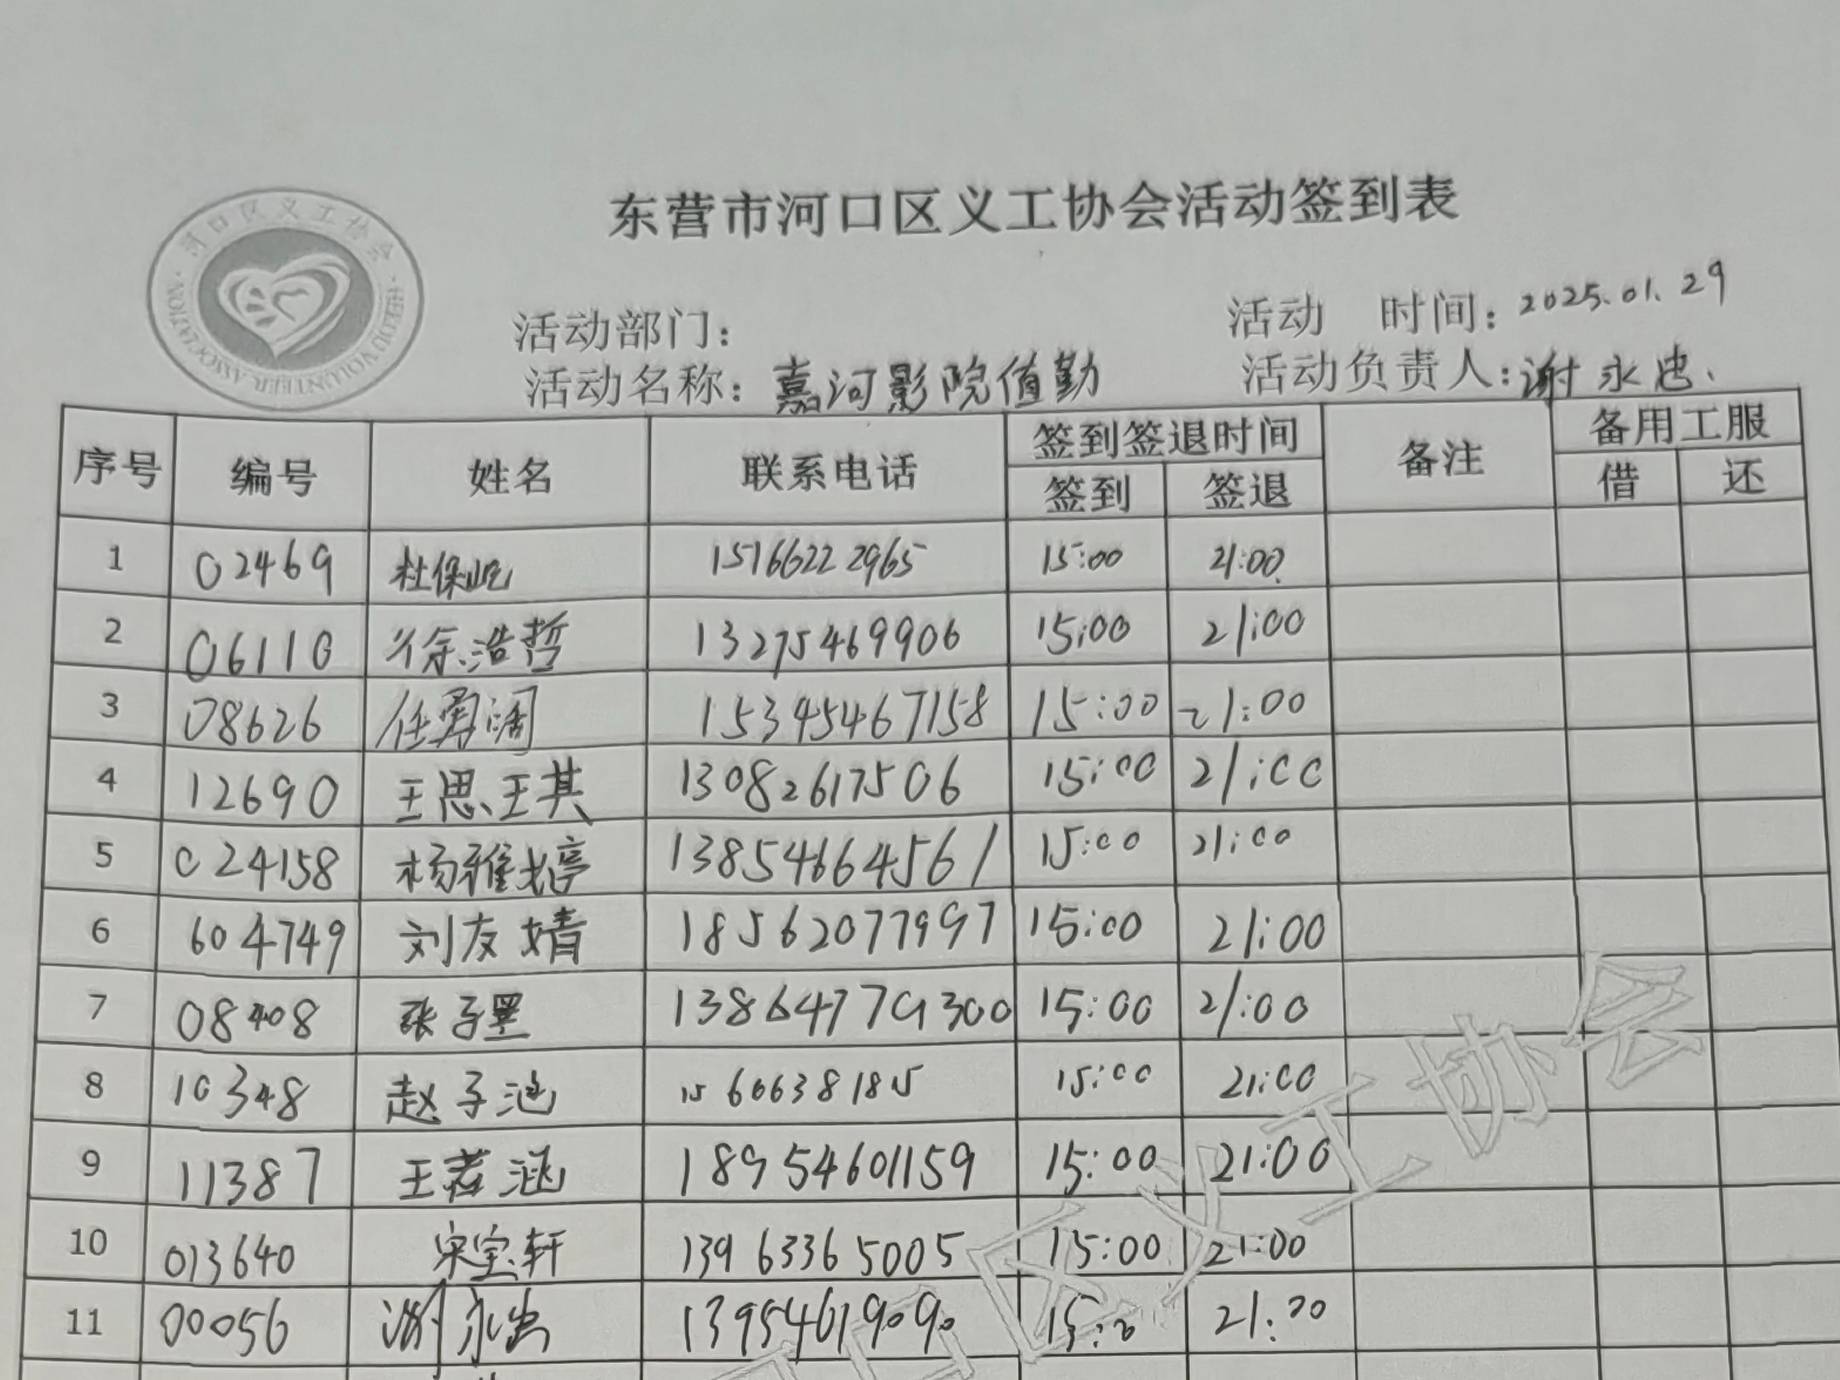 东营市河口区义工协会活动签到表
河口区义工协会
HEKOU VOLUNTEER ASSOCIATION
活动部门： 活动 时间：2025.01.29
活动名称：嘉河影院值勤 活动负责人：谢永忠、
序号 编号 姓名 联系电话 签到签退时间 备注 备用工服
签到 签退 借 还
1 02469 杜保屹 15166222965 15:00 21:00
2 06110 徐浩哲 13275469906 15:00 21:00
3 08626 任 15345467158 15:00 21:00
4 12690 王思琪 13082617506 15:00 21:00
5 024158 杨雅婷 13854664561 15:00 21:00
6 604749 刘友婧 18562077997 15:00 21:00
7 08408 张子墨 13864779300 15:00 21:00
8 10348 赵子涵 1560638185 15:00 21:00
9 11387 王若涵 18954601159 15:00 21:00
10 013640 宋宝轩 13963365005 15:00 21:00
11 00056 谢永忠 13954619090 21:00
口区义工协会